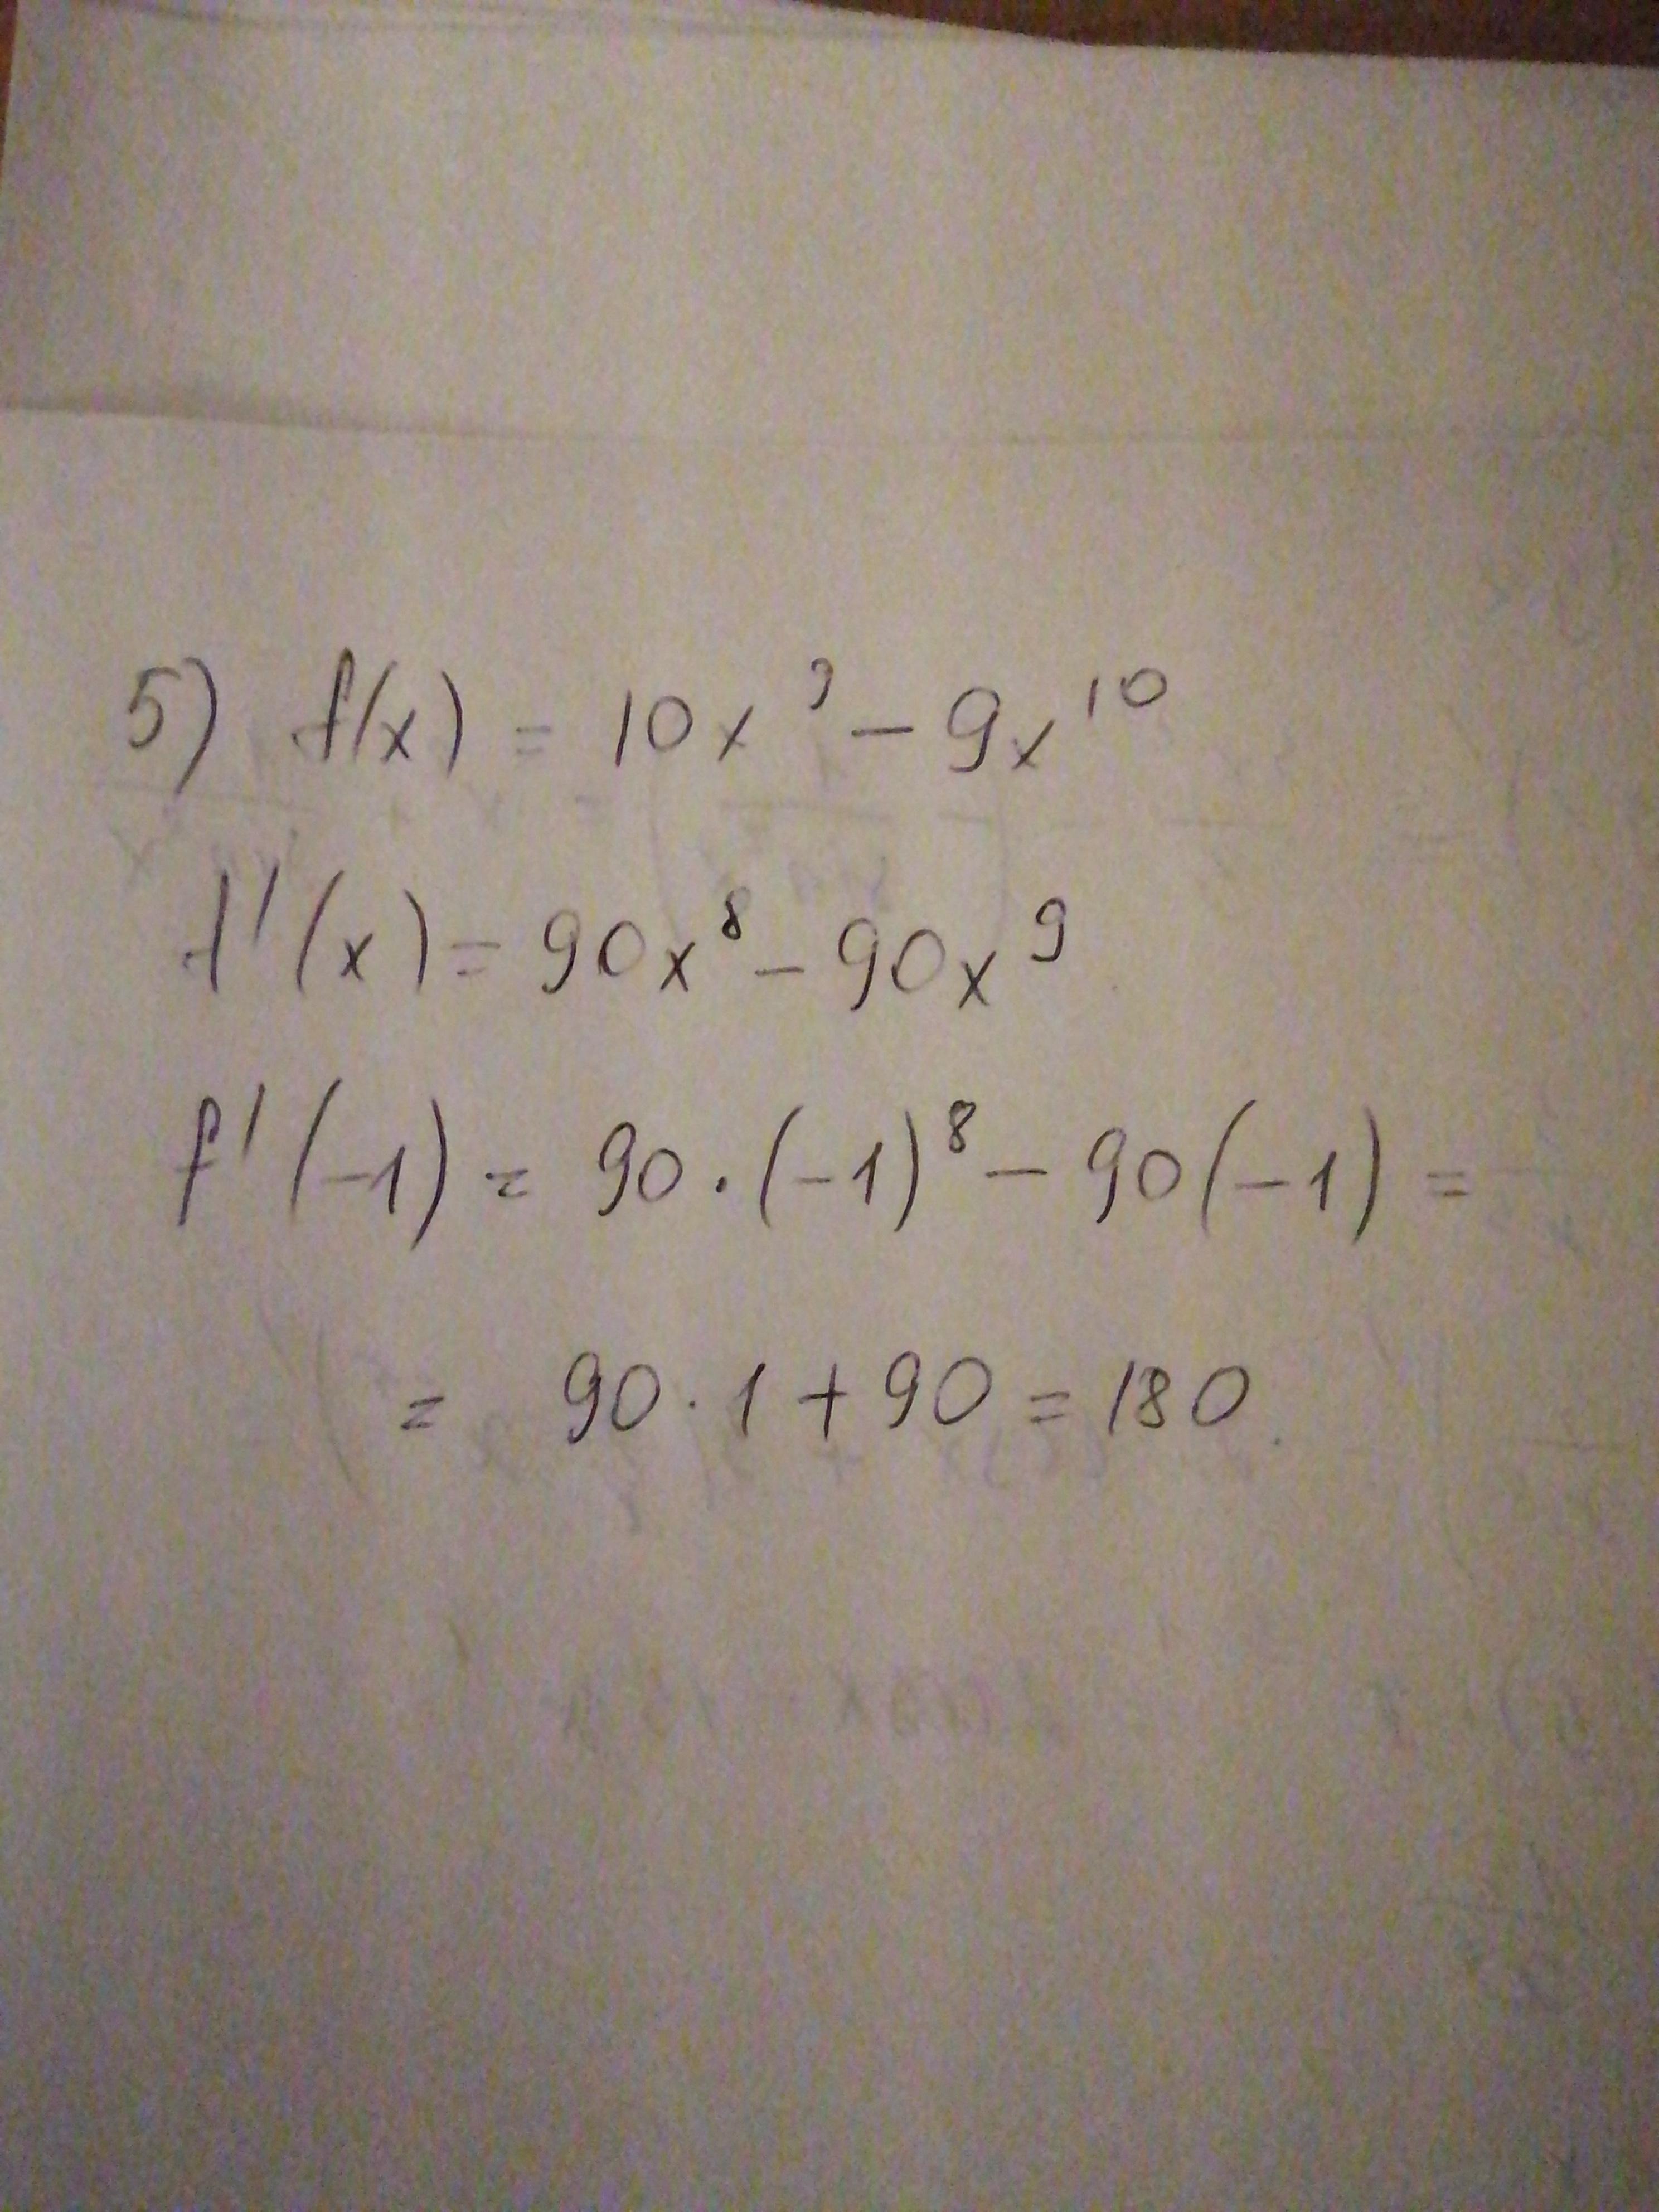 5) f(x) = 10x⁹ - 9x¹⁰
f'(x) = 90x⁸ - 90x⁹
f'(-1) = 90 · (-1)⁸ - 90(-1) =
= 90 · 1 + 90 = 180